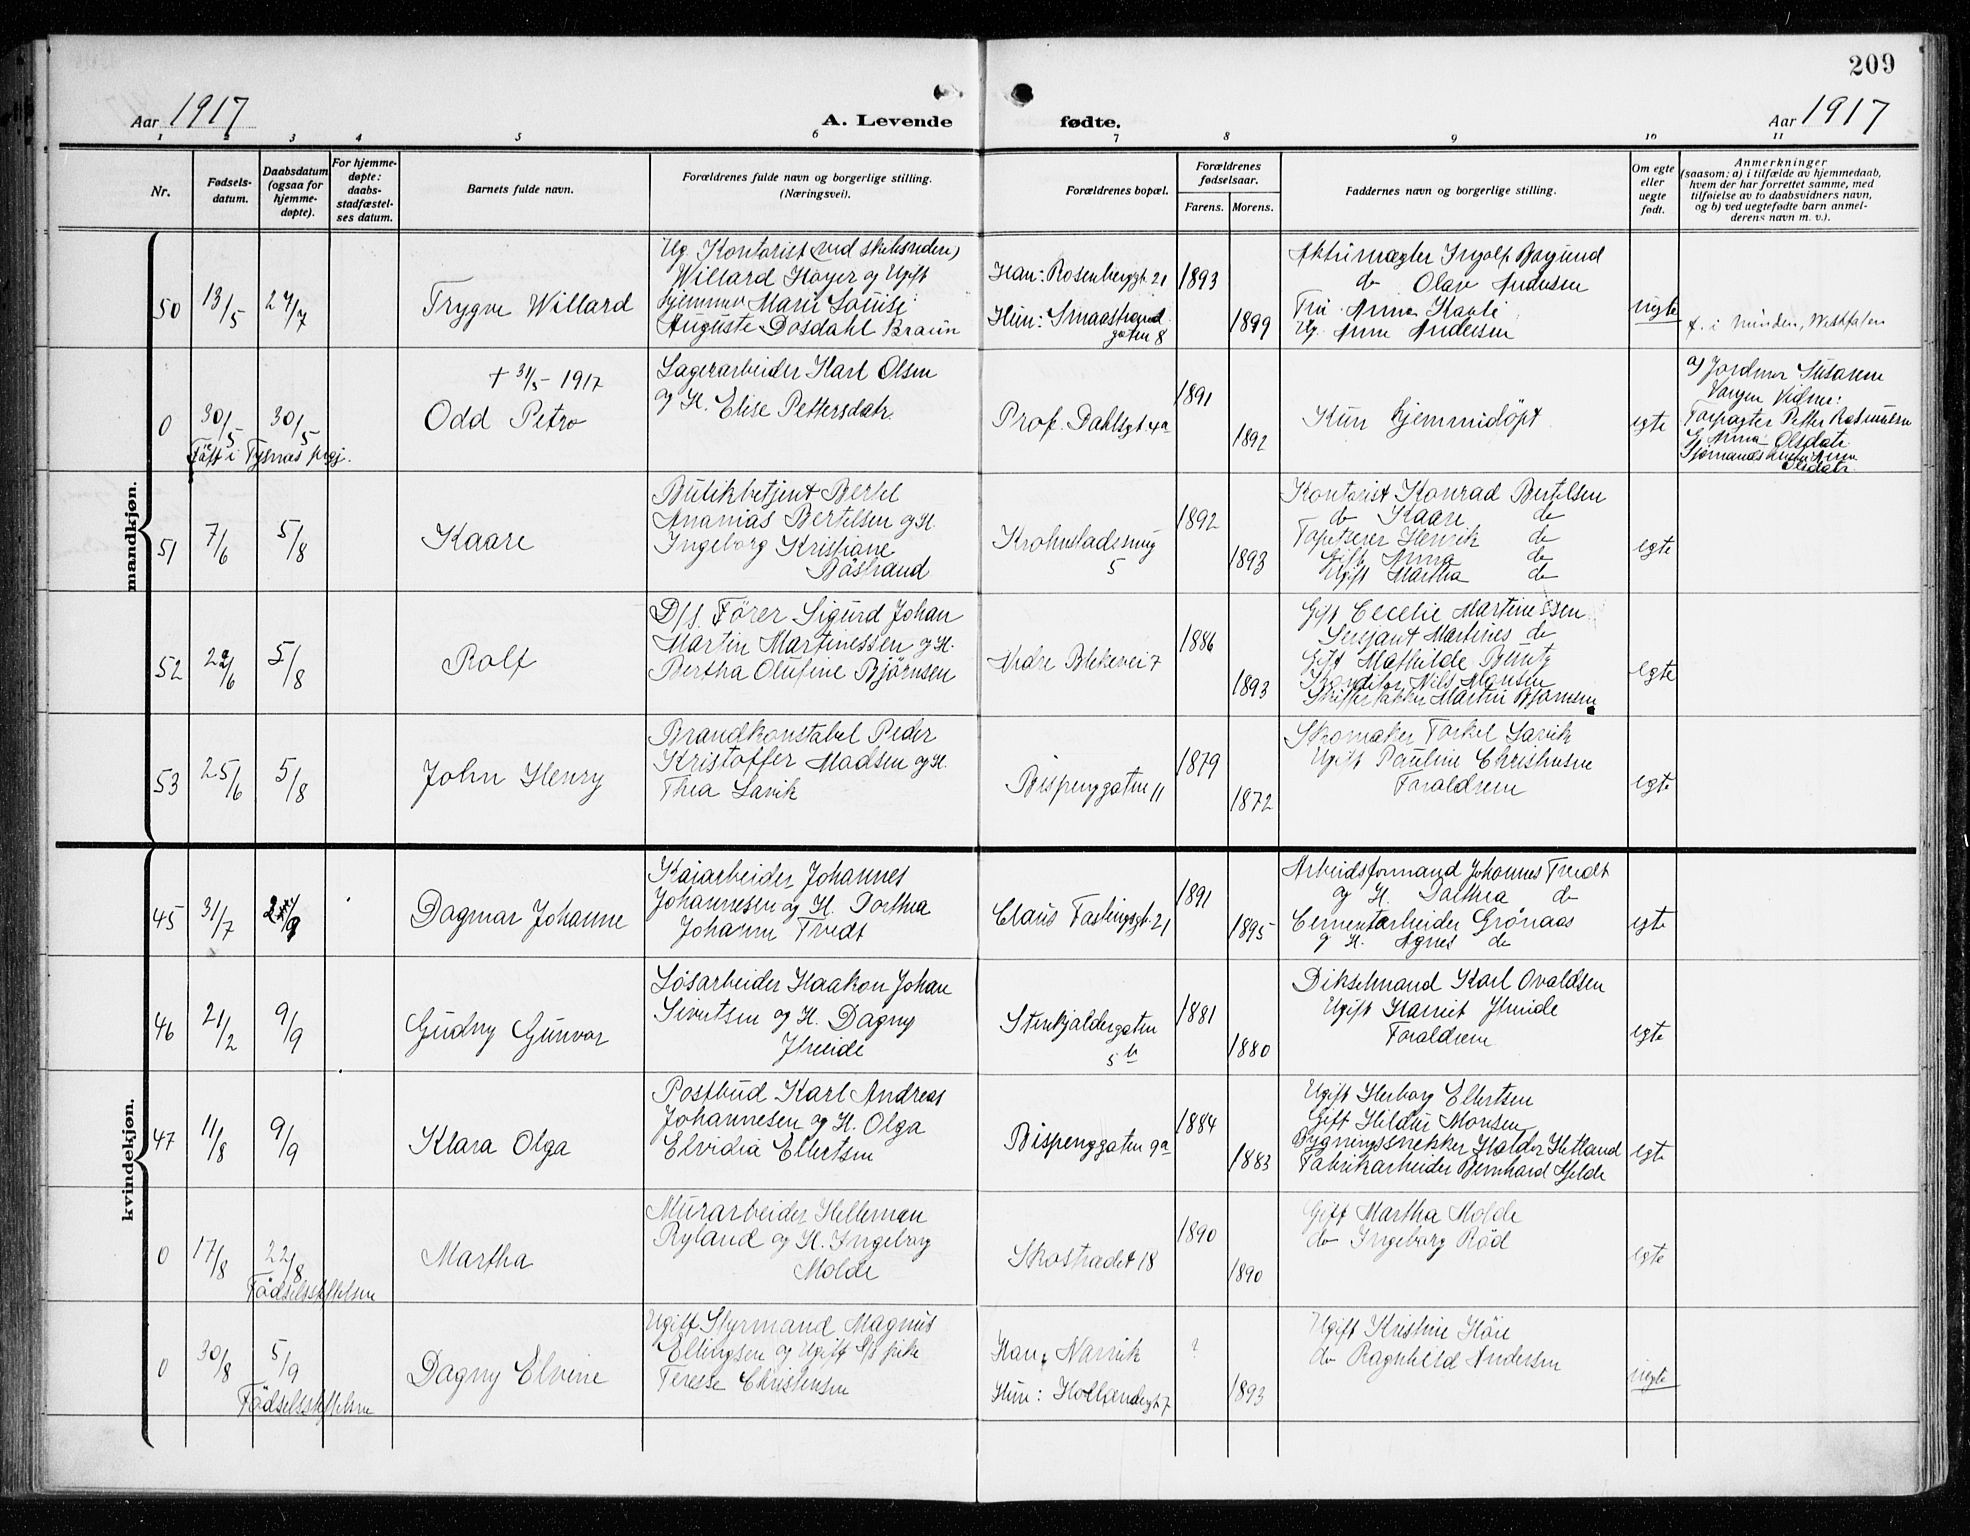 209
Aar 1917
A. Levende
fødte.
Aar 1917
1 2 3 4 5 6 7 8 9 10 11
Nr.
Fødsels-
datum.
Daabsdatum
(ogsaa for
hjemme-
døpte).
For hjemme-
døpte:
daabs-
stadfæstel-
ses datum.
Barnets fulde navn.
Forældrenes fulde navn og borgerlige stilling.
(Næringsvei).
Forældrenes bopæl.
Forældrenes
fødselsaar.
Farens. Morens.
Faddernes navn og borgerlige stilling.
Om egte
eller
uegte
født.
Anmerkninger
(saasom: a) i tilfælde av hjemmedaab,
hvem der har forrettet samme, med
tilføielse av to daabsvidners navn,
og b) ved uegtefødte barn anmel-
derens navn m. v.).
mandkjøn.
50
13/5
Trygve Willard
Ug. Kontorist
Willard Høyer og Ugift
Hjemmev Marie Louise
Auguste Dosdahl Braun
Han: Rosenberggt 21
Hun: Smaastrand
gaten 8
1893
1899
Olav Andersen
Ug. Anne Andersen
uegte
f. i Minden, Westfalen
0
30/5
30/5
Født i Tysnes prgj.
+ 31/5 - 1917
Odd Petro
Lagerarbeider Karl Olsen
og H. Elise Pettersdatr
Prof. Dahlsgt 4a
1891
1892
Kun hjemmedøpt
egte
a) Jordmor Susanne
Vidner:
Forpagter Petter Rasmussen
51
7/6
5/8
Kaare
Butikbetjent Bertel
Ananias Bertelsen og H.
Ingeborg Kristiane
Bøstrand
5
1892
1893
Kontorist Konrad Bertelsen
do Kaare do
Tapetserer Henrik do
Gift Anna do
Ugift Martha do
egte
52
5/8
Rolf
D/s. Fører Sigurd Johan
Martin Martinessen og H.
Bertha Olufine Bjørnsen
Nedre Blekevei 7
1886
1893
Gift Cecelie Martinessen
Sersjant Martines do
Gift Mathilde Bentz
Konditor Nils Monsen
Martin Bjørnsen
egte
53
25/6
5/8
John Henry
Brandkonstabel Peder
Kristoffer Madsen og H.
Thea Lavik
Bispenggaten 11
1879
1872
Skomaker Torkel Lavik
Ugift Pauline Christensen
Forældrene
egte
kvindekjøn.
45
31/7
Dagmar Johanne
Kaiarbeider Johannes
Johannesen og H. Dorthea
Johanne Tvedt
Claus Fastingsgt. 21
1891
1895
Arbeidsformand Johannes Tvedt
og H. Dorthea do
Cementarbeider Grønaas
og H. Agnes do
egte
46
21/2
9/9
Gudny Gunvor
Løsarbeider Haakon Johan
Sivertsen og H. Dagny
Hreide
Stenkjeldergaten
5 b
1881
1880
Dikselmand Karl Ovaldsen
Ugift Harriet Hreide
Forældrene
egte
47
11/8
9/9
Klara Olga
Postbud Karl Andreas
Johannesen og H. Olga
Elvidia Ellertsen
Bispenggaten 9a
1884
1883
Ugift Herborg Ellertsen
Gift Hildur Monsen
Bygningssnekker Haldor Hetland
Fabrikarbeider Bernhard Hjelde
egte
0
17/8
22/8
Fødselsstiftelsen
Martha
Murarbeider Helleman
Ryland og H. Ingeborg
Molde
Skostrædet 18
1890
1890
Gift Martha Molde
do Ingeborg Rød
egte
0
30/8
5/9
Fødselsstiftelsen
Dagny Elvine
Ugift Styrmand Magnus
Ellingsen og Ugift
Terese Christensen
Han: Narvik
Hun: Hollendergt 7
?
1893
Ugift Kristine
do Ragnhild Andersen
uegte